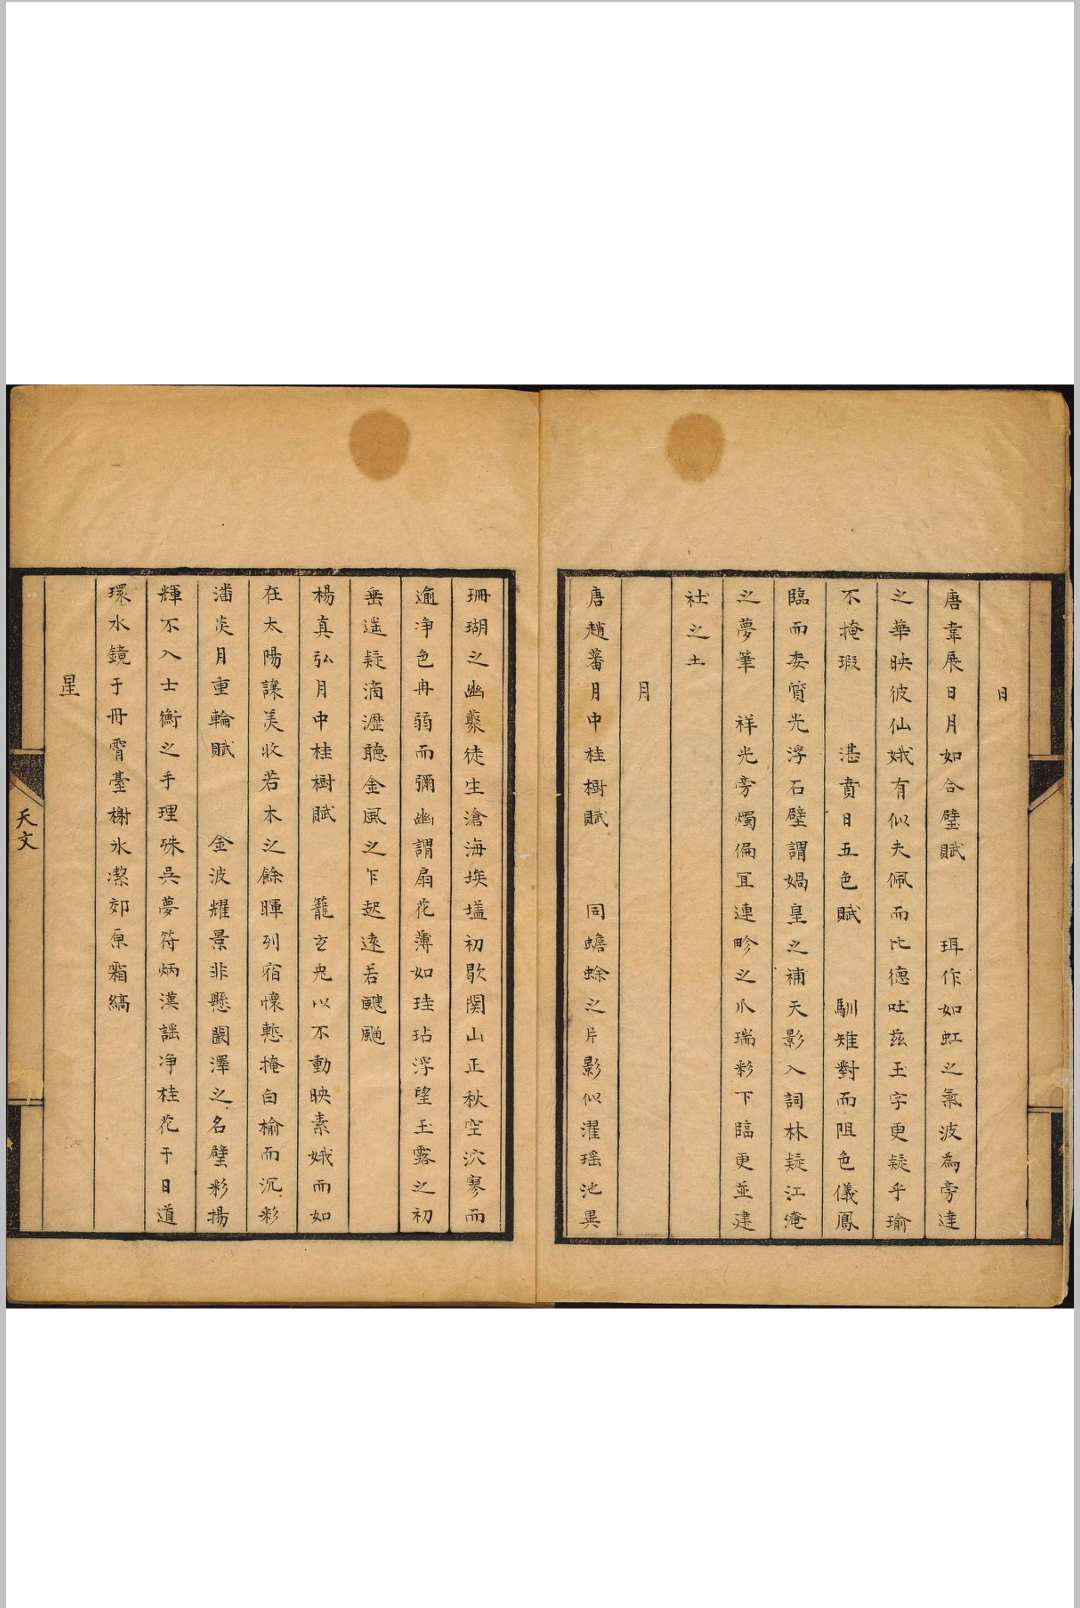 日
唐韋展日月如合璧賦 珥作如虹之氣波為旁達
之華映彼仙娥有似夫佩而比德吐茲玉字更疑乎瑜
不掩瑕 湛賁日五色賦 馴雉對而阻色儀鳳
臨而委質光浮石壁謂媧皇之補天影入詞林疑江淹
之夢筆 祥光旁燭偏宜連畛之爪瑞彩下臨更並建
社之土
月
唐趙蕃月中桂樹賦 同蟾蜍之片影似濯瑤池異
珊瑚之幽藂徒生滄海埃壒初歇関山正秋空泬寥而
逾净色冉弱而彌幽謂扇花薄如珪玷浮望玉露之初
垂遥疑滴瀝聽金風之乍起遠若飀飀
楊真弘月中桂樹賦 籠玄兔以不動映素娥而如
在太陽讓美收若木之餘暉列宿懷慙掩白榆而沉彩
潘炎月重輪賦 金波耀景非懸闞澤之名璧彩揚
輝不入士衡之手理殊吳夢符炳漢謡净桂花于日道
環水鏡于冊霄臺榭氷潔郊原霜縞
星
天文